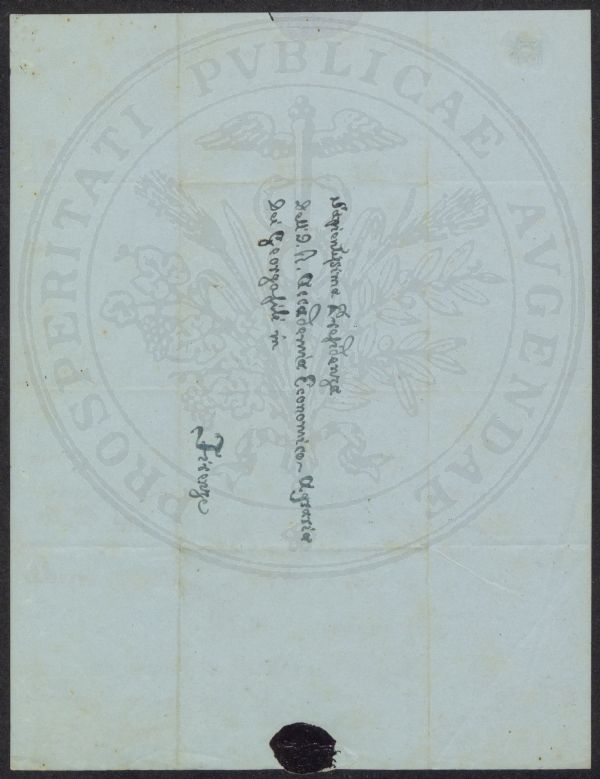 Sapientissima Presidenza
Dell' I. R. Accademia Economico-Agraria
Dei Georgofili in
Firenze
PROSPERITATI PVBLICAE AVGENDAE